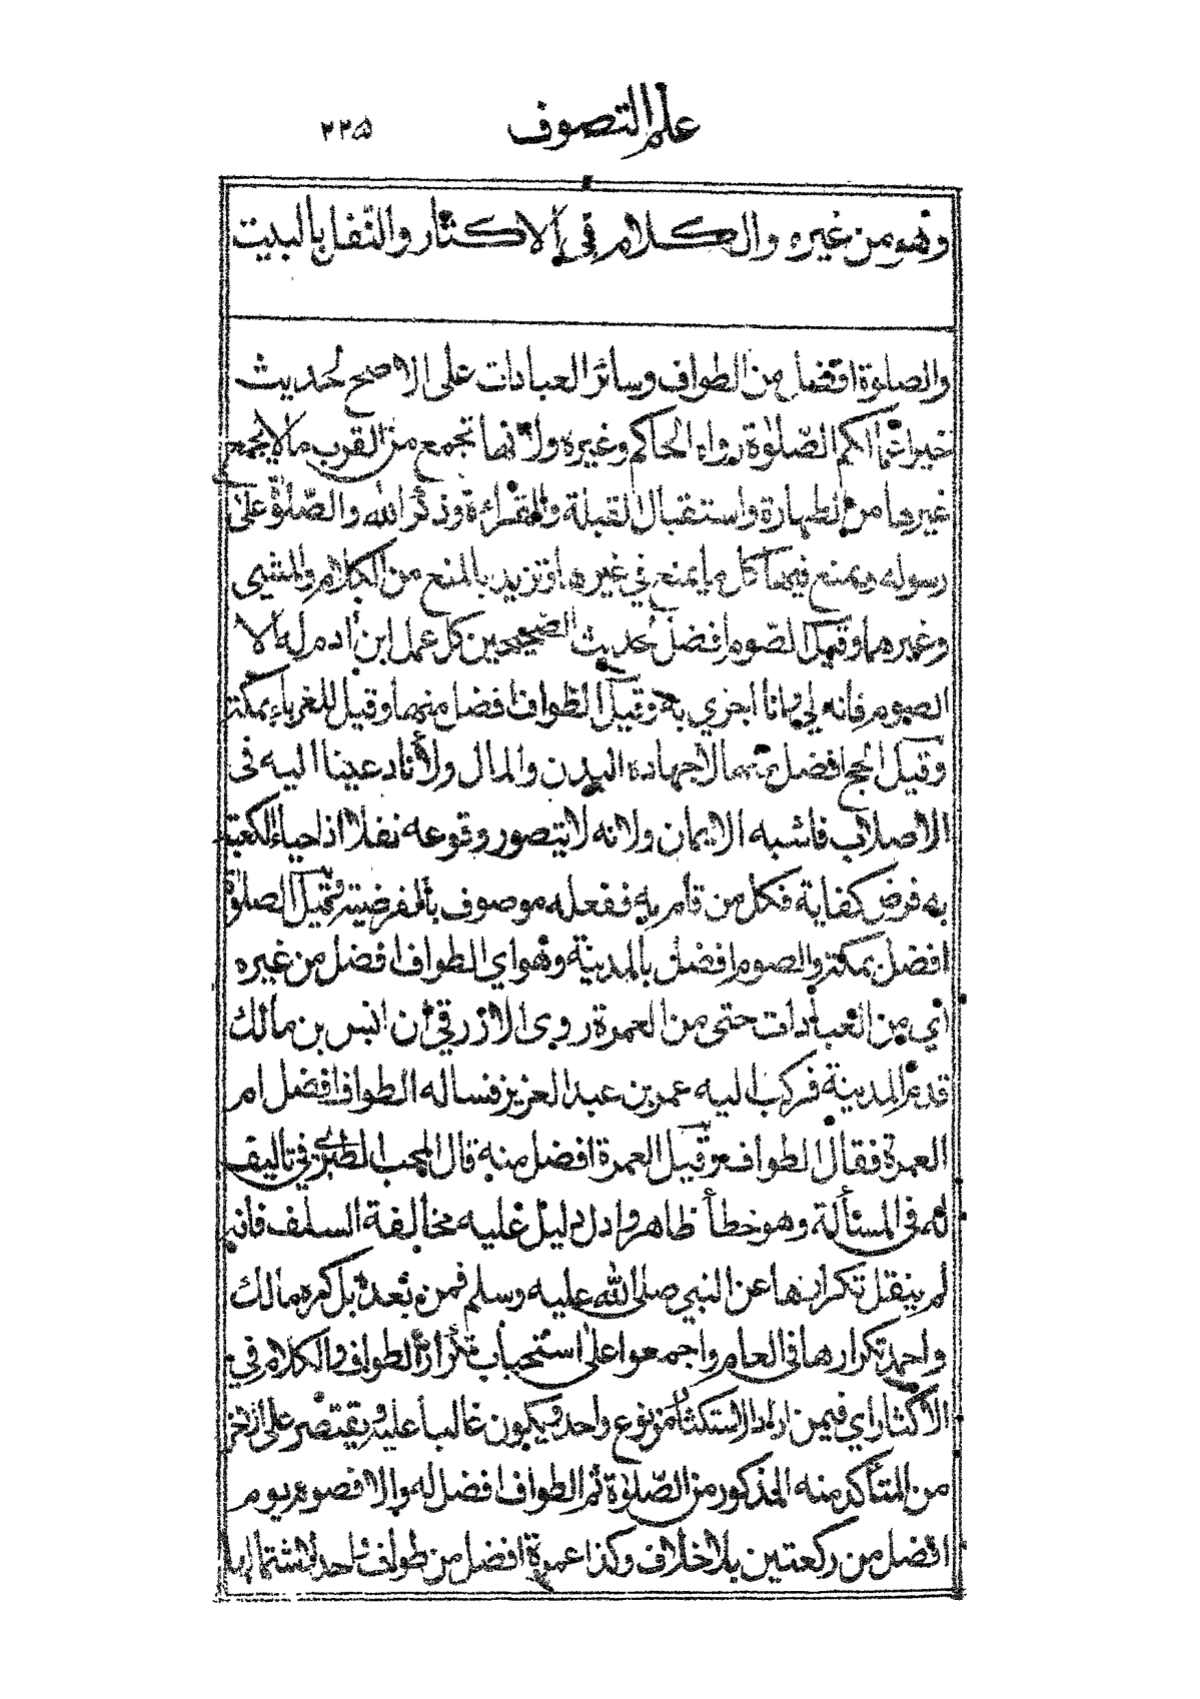 علم التصوف ٢٢٥
وهو من غيره والكلام في الاكثار والنفل بالبيت
والصلوة افضل من الطواف وسائر العبادات على الاصح لحديث
خير اعمالكم الصلوة رواه الحاكم وغيره ولانها تجمع من القرب ما لا يجمع
غيرها من الطهارة واستقبال القبلة والقراءة وذكر الله والصلوة على
رسوله ويمنع فيها كل ما يمنع في غيرها وتزيد بالمنع من الكلام والمشي
وغيرهما وقيل الصوم افضل لحديث الصحيحين كل عمل ابن أدم له الا
الصوم فانه لي وانا اجزي به وقيل الطواف افضل منهما وقيل للغرباء بمكة
وقيل الحج افضل منهما لاجهاده البدن والمال ولأنا دعينا اليه فى
الاصلاب فاشبه الايمان ولانه لا يتصور وقوعه نفلا اذ احياء الكعبة
به فرض كفاية فكل من قام به ففعله موصوف بالفرضية وقيل الصلوة
افضل بمكة والصوم افضل بالمدينة وهو اي الطواف افضل من غيره
أي من العبادات حتى من العمرة روى الازرقي أن انس بن مالك
قدم المدينة فركب اليه عمر بن عبد العزيز فساله الطواف افضل ام
العمرة فقال الطواف وقيل العمرة افضل منه قال المحب الطبري في تاليف
له في المسئألة وهو خطأ ظاهر وادل دليل عليه مخالفة السلف فانه
لم ينقل تكرارها عن النبي صلى الله عليه وسلم فمن بعده بل كره مالك
واحمد تكرارها فى العام واجمعوا على استحباب تكرار الطواف والكلام في
الاكثار اي فيمن اراد الاستكثار من نوع واحد ويكون غالبا عليه ويقتصر على الاخر
من المتأكد منه المذكور من الصلوة ثم الطواف افضل له والا فصوم يوم
افضل من ركعتين بلا خلاف وكذا عمرة افضل من طواف واحد لاشتمالها